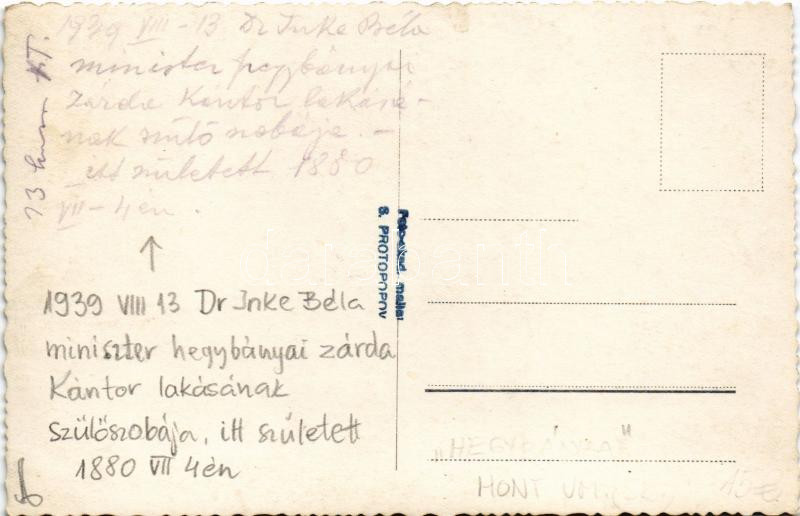 1939 VIII - 13 Dr Inke Béla
minister hegybányai
zárda Kántor lakásá-
nak szülő szobája. -
itt született 1880
VII - 4én.
1939 VIII 13 Dr Inke Béla
miniszter hegybányai zárda
Kántor lakásának
szülőszobája, itt született
1880 VII 4én
S. PROTOPOPOV
„HEGYBÁNYA"
HONT